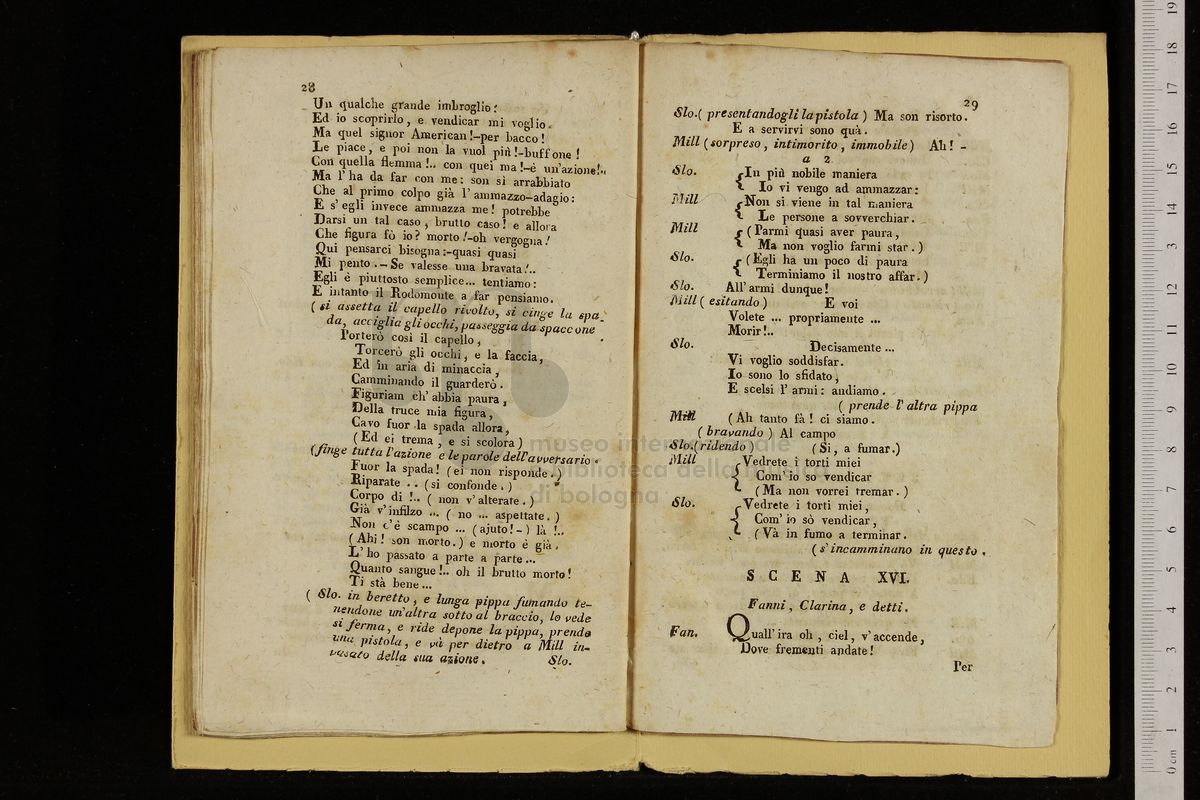 28
Un qualche grande imbroglio:
Ed io scoprirlo, e vendicar mi voglio.
Ma quel signor American!-per bacco!
Le piace, e poi non la vuol più!-buffone!
Con quella flemma!.. con quei ma!-è un'azione!..
Ma l'ha da far con me: son sì arrabbiato
Che al primo colpo già l'ammazzo-adagio:
E s'egli invece ammazza me! potrebbe
Darsi un tal caso, brutto caso! e allora
Che figura fò io? morto!-oh vergogna!
Qui pensarci bisogna:-quasi quasi
Mi pento.-Se valesse una bravata!..
Egli è piuttosto semplice... tentiamo:
E intanto il Rodomonte a far pensiamo.
(si assetta il capello rivolto, si cinge la spa-
da, acciglia gli occhi, passeggia da spaccone
Porterò così il capello,
Torcerò gli occhi, e la faccia,
Ed in aria di minaccia,
Camminando il guarderò.
Figuriam ch'abbia paura,
Della truce mia figura,
Cavo fuor la spada allora,
(Ed ei trema, e si scolora)
(finge tutta l'azione e le parole dell'avversario.
Fuor la spada! (ei non risponde.)
Riparate .. (si confonde.)
Corpo di!.. (non v'alterate.)
Già v'infilzo ... (no ... aspettate.)
Non c'è scampo ... (ajuto!-) là!..
(Ahi! son morto.) e morto è già.
L'ho passato a parte a parte...
Quanto sangue!.. oh il brutto morto!
Ti stà bene...
( Slo. in beretto, e lunga pippa fumando te-
nendone un'altra sotto al braccio, lo vede
si ferma, e ride depone la pippa, prende
una pistola, e và per dietro a Mill in-
vasato della sua azione.
Slo.
29
Slo.( presentandogli la pistola ) Ma son risorto.
E a servirvi sono quà.
Mill (sorpreso, intimorito, immobile) Ah! -
a 2
Slo. In più nobile maniera
Io vi vengo ad ammazzar:
Mill Non si viene in tal maniera
Le persone a sovverchiar.
Mill (Parmi quasi aver paura,
Ma non voglio farmi star.)
Slo. (Egli ha un poco di paura
Terminiamo il nostro affar.)
Slo. All'armi dunque!
Mill ( esitando ) E voi
Volete ... propriamente ...
Morir!..
Slo. Decisamente ...
Vi voglio soddisfar.
Io sono lo sfidato,
E scelsi l'armi: andiamo.
( prende l'altra pippa
Mill (Ah tanto fà! ci siamo.
( bravando ) Al campo
Slo.(ridendo ) (Si, a fumar.)
Mill Vedrete i torti miei
Com'io so vendicar
(Ma non vorrei tremar.)
Slo. Vedrete i torti miei,
Com'io sò vendicar,
(Và in fumo a terminar.
(s'incamminano in questo.
SCENA XVI.
Fanni, Clarina, e detti.
Fan. Quall'ira oh, ciel, v'accende,
Dove frementi andate!
Per
museo internazionale
biblioteca della musica
di bologna
0 cm 1 2 3 4 5 6 7 8 9 10 11 12 13 14 15 16 17 18 19